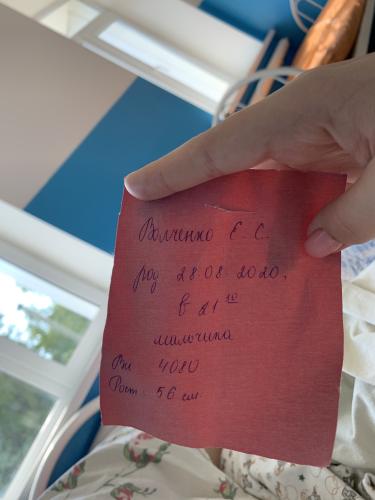 Волченко Е. С.
род 28.08.2020.
в 21 10
мальчика
Вт 4080
Рост 56 см